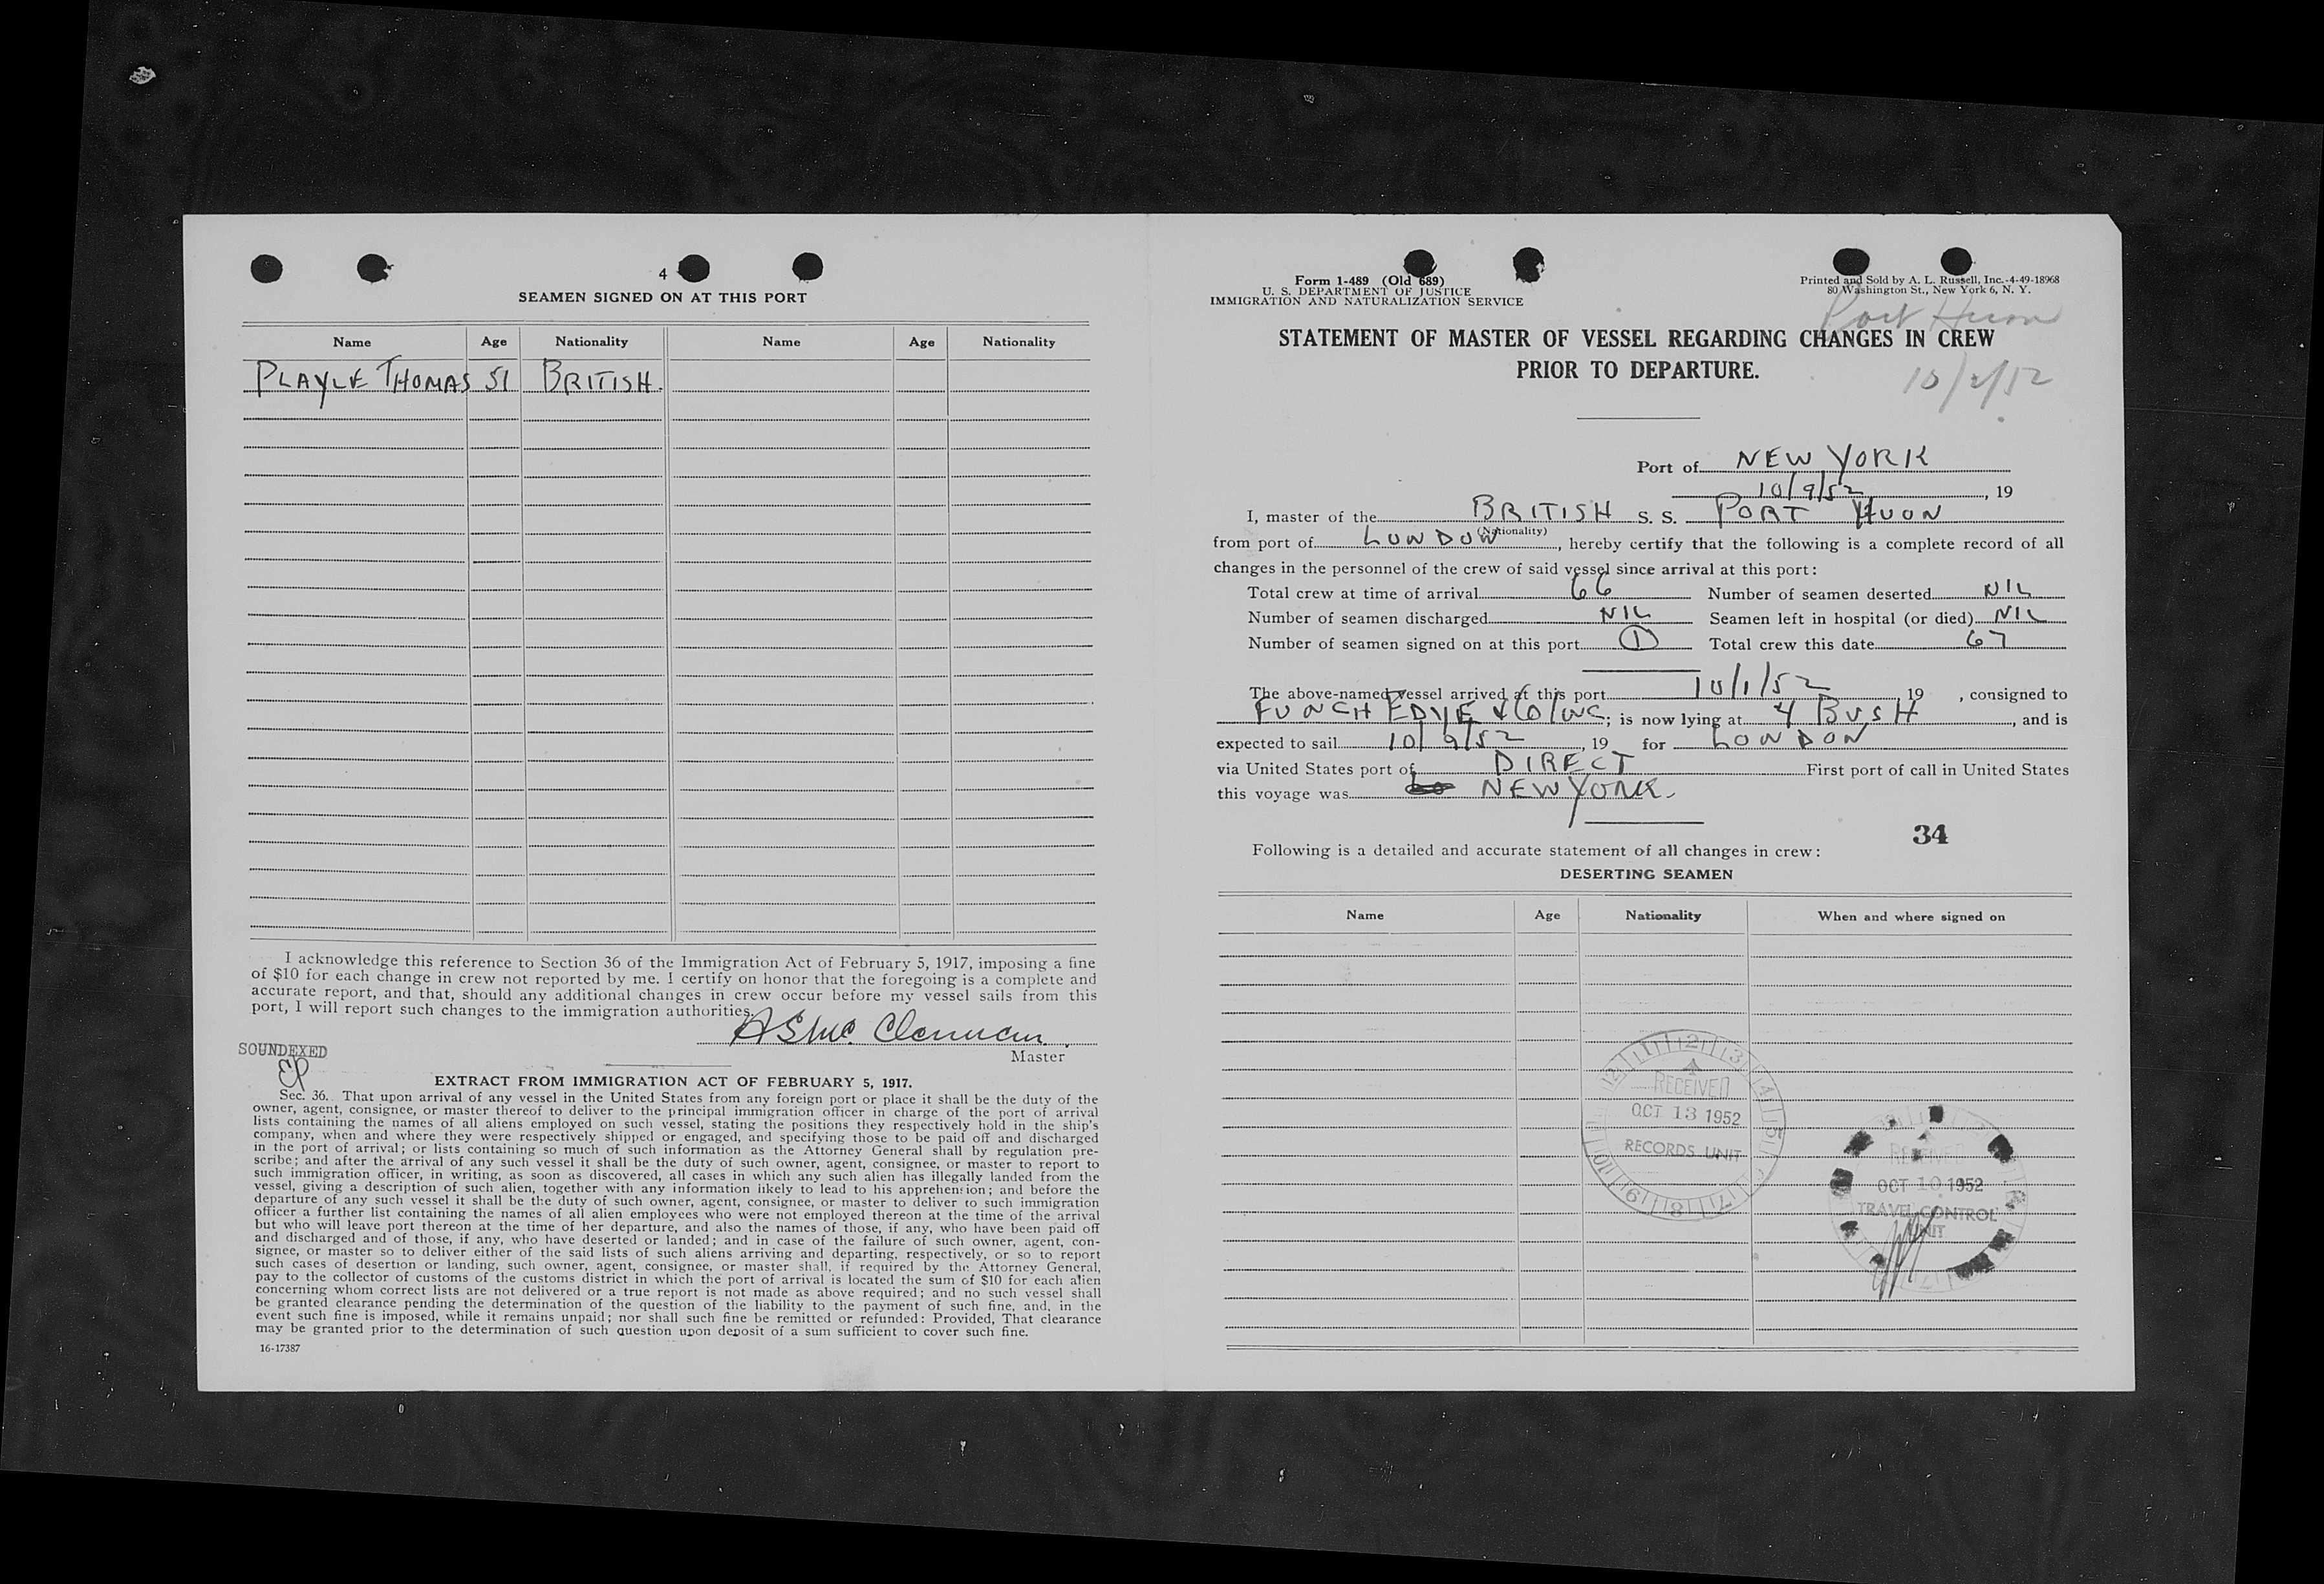 4
SEAMEN SIGNED ON AT THIS PORT
Name Age Nationality Name Age Nationality
PLAYLE THOMAS 51 BRITISH.
I acknowledge this reference to Section 36 of the Immigration Act of February 5, 1917, imposing a fine
of $10 for each change in crew not reported by me. I certify on honor that the foregoing is a complete and
accurate report, and that, should any additional changes in crew occur before my vessel sails from this
port, I will report such changes to the immigration authorities.
Master
SOUNDEXED
EXTRACT FROM IMMIGRATION ACT OF FEBRUARY 5, 1917.
Sec. 36. That upon arrival of any vessel in the United States from any foreign port or place it shall be the duty of the
owner, agent, consignee, or master thereof to deliver to the principal immigration officer in charge of the port of arrival
lists containing the names of all aliens employed on such vessel, stating the positions they respectively hold in the ship's
company, when and where they were respectively shipped or engaged, and specifying those to be paid off and discharged
in the port of arrival; or lists containing so much of such information as the Attorney General shall by regulation pre-
scribe; and after the arrival of any such vessel it shall be the duty of such owner, agent, consignee, or master to report to
such immigration officer, in writing, as soon as discovered, all cases in which any such alien has illegally landed from the
vessel, giving a description of such alien, together with any information likely to lead to his apprehension; and before the
departure of any such vessel it shall be the duty of such owner, agent, consignee, or master to deliver to such immigration
officer a further list containing the names of all alien employees who were not employed thereon at the time of the arrival
but who will leave port thereon at the time of her departure, and also the names of those, if any, who have been paid off
and discharged and of those, if any, who have deserted or landed; and in case of the failure of such owner, agent, con-
signee, or master so to deliver either of the said lists of such aliens arriving and departing, respectively, or so to report
such cases of desertion or landing, such owner, agent, consignee, or master shall, if required by the Attorney General,
pay to the collector of customs of the customs district in which the port of arrival is located the sum of $10 for each alien
concerning whom correct lists are not delivered or a true report is not made as above required; and no such vessel shall
be granted clearance pending the determination of the question of the liability to the payment of such fine, and, in the
event such fine is imposed, while it remains unpaid; nor shall such fine be remitted or refunded: Provided, That clearance
may be granted prior to the determination of such question upon deposit of a sum sufficient to cover such fine.
16-17387
Form 1-489 (Old 689)
U. S. DEPARTMENT OF JUSTICE
IMMIGRATION AND NATURALIZATION SERVICE
Printed and Sold by A. L. Russell, Inc.-4-49-18968
80 Washington St., New York 6, N. Y.
STATEMENT OF MASTER OF VESSEL REGARDING CHANGES IN CREW
PRIOR TO DEPARTURE.
Port of NEW YORK
10/9/52, 19
I, master of the BRITISH S. S. PORT HUON
(Nationality)
from port of LONDON, hereby certify that the following is a complete record of all
changes in the personnel of the crew of said vessel since arrival at this port:
Total crew at time of arrival 66 Number of seamen deserted NIL
Number of seamen discharged NIL Seamen left in hospital (or died) NIL
Number of seamen signed on at this port 1 Total crew this date 67
The above-named vessel arrived at this port 10/1/52, 19 , consigned to
FUNCH EDYE & CO INC; is now lying at 4 BUSH, and is
expected to sail 10/9/52, 19 for LONDON
via United States port of DIRECT First port of call in United States
this voyage was NEW YORK.
34
Following is a detailed and accurate statement of all changes in crew:
DESERTING SEAMEN
Name Age Nationality When and where signed on
RECEIVED
OCT 13 1952
RECORDS UNIT
RECEIVED
OCT 10 1952
TRAVEL CONTROL
UNIT